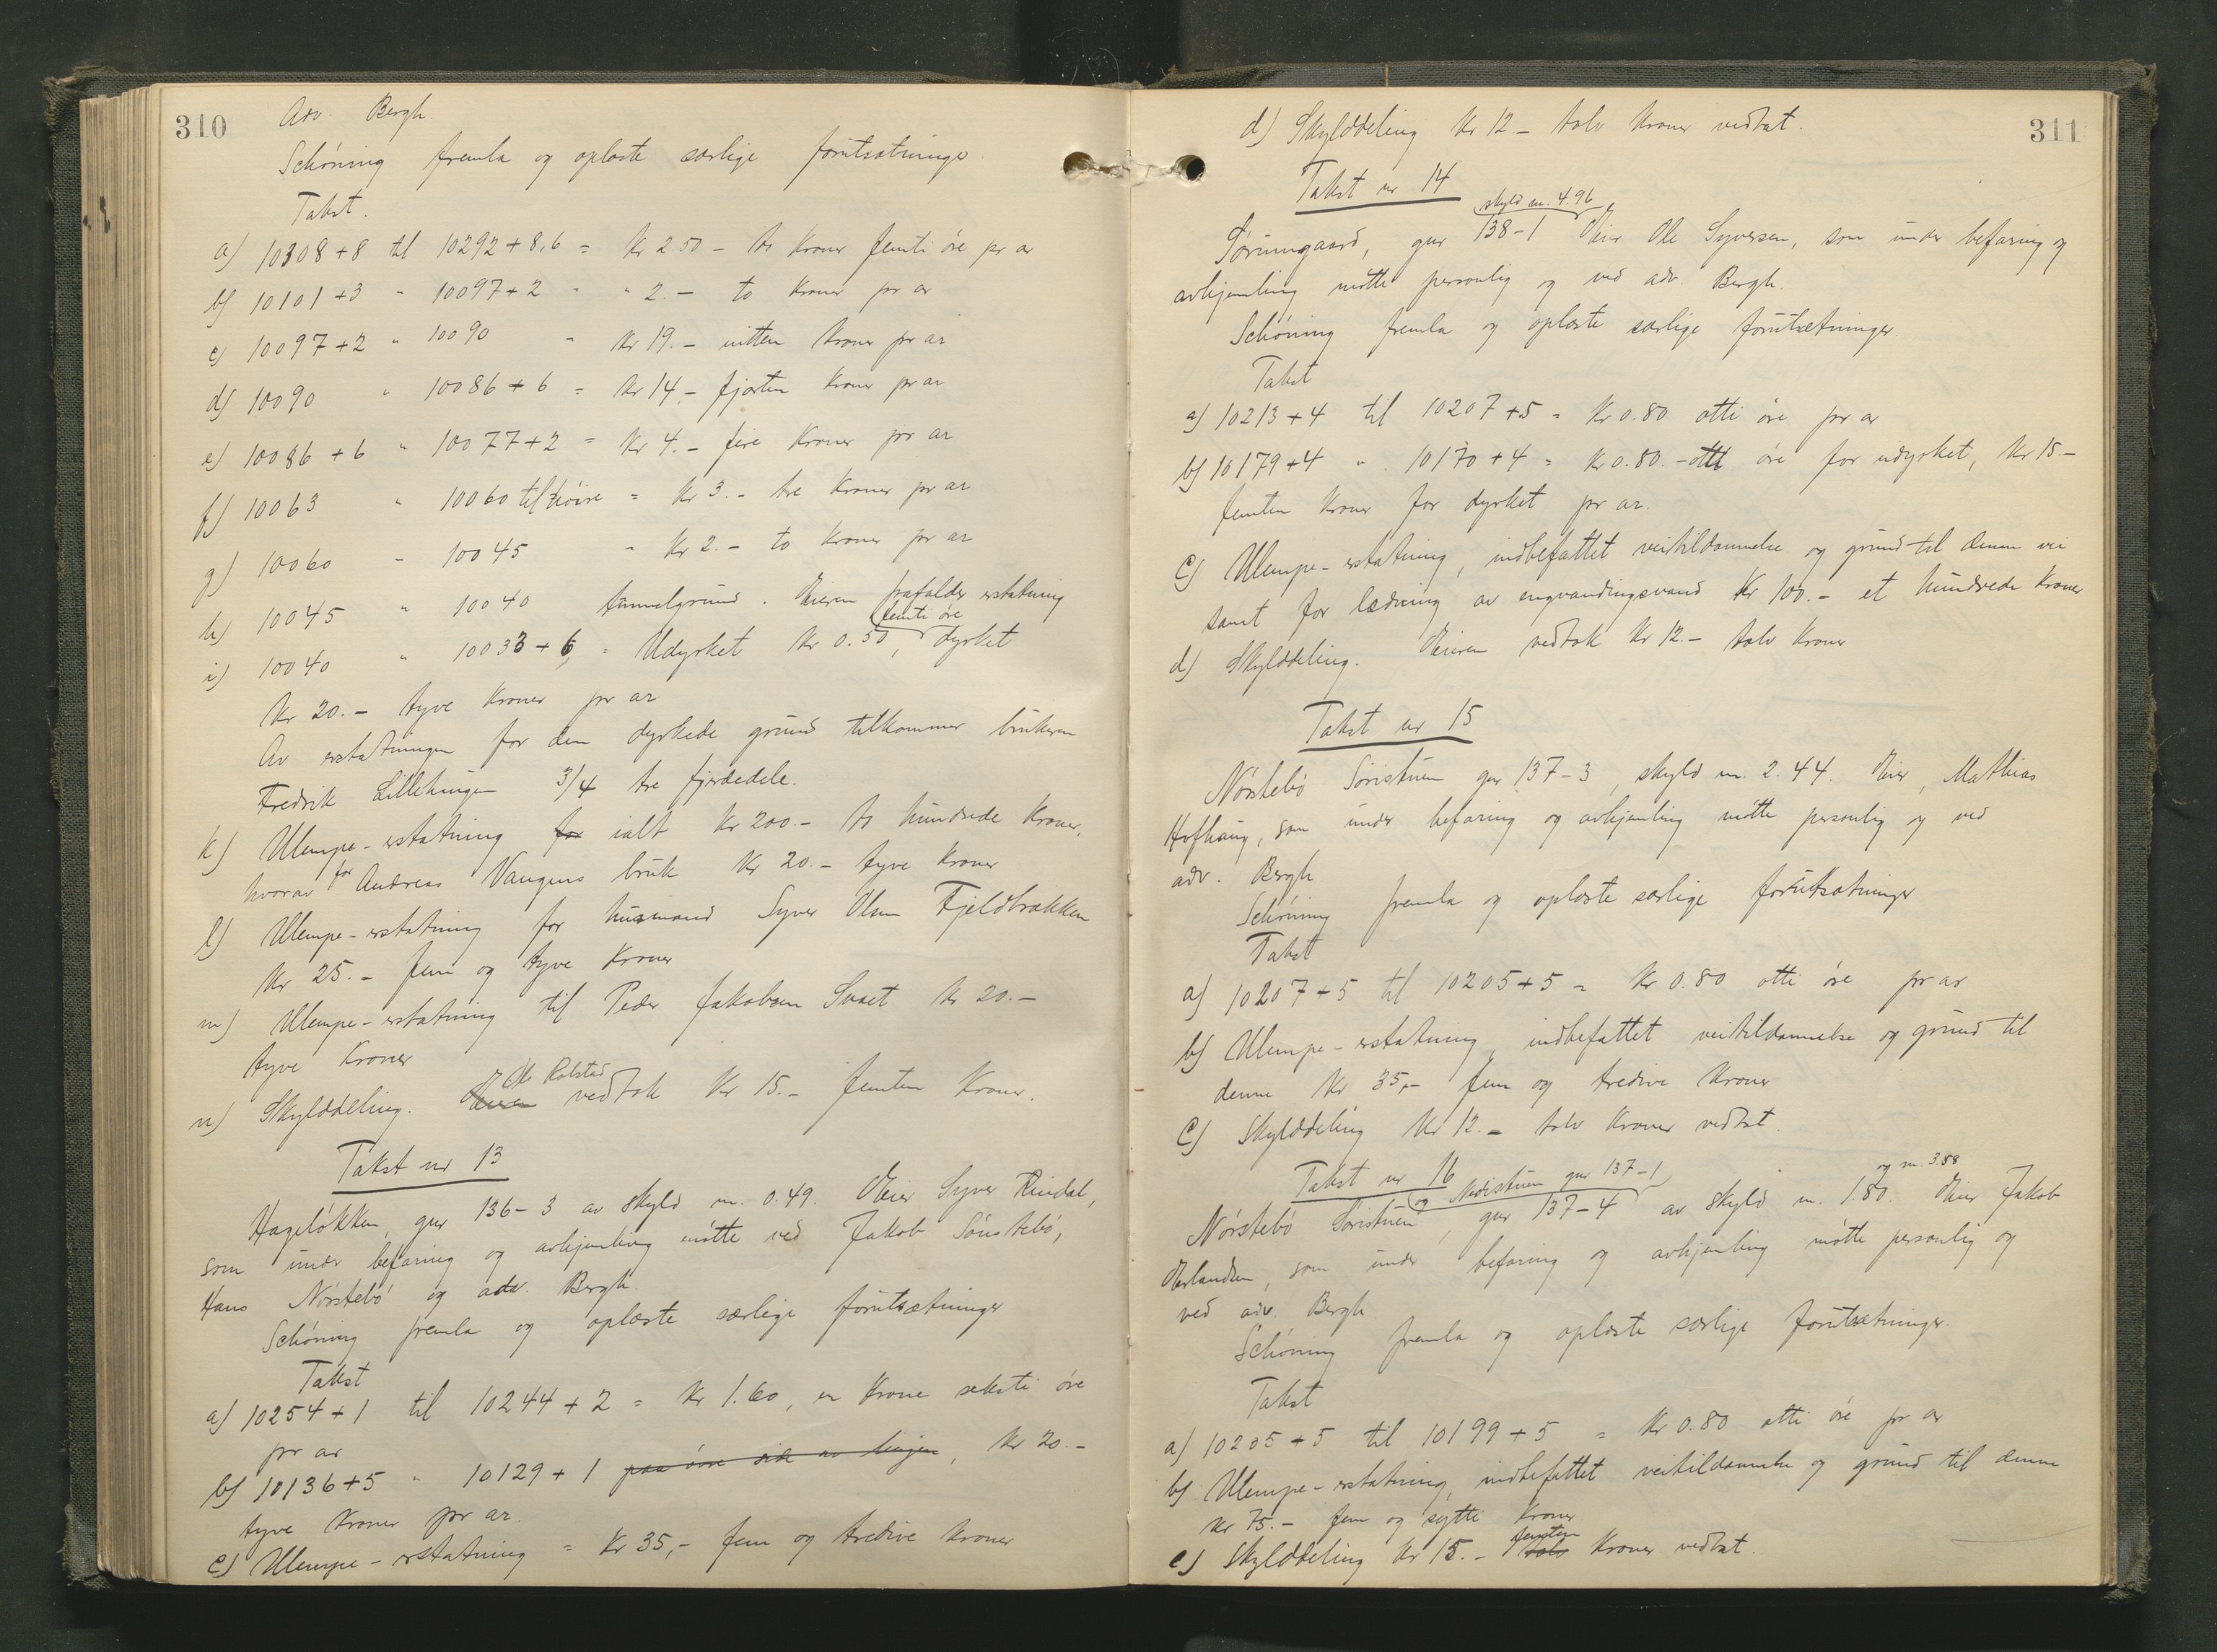 310
Adv. Bergh.
Schöning fremla og oplæste særlige forutsætninger.
Takst.
a) 10308+8 til 10292+8,6 = Kr 2.50 – to Kroner femti öre pr ar
b) 10101+3 " 10097+2 " " 2.– to Kroner pr ar
c) 10097+2 " 10090 " Kr 19.– nitten Kroner pr ar
d) 10090 " 10086+6 = Kr 14.– fjorten Kroner pr ar
e) 10086+6 " 10077+2 = Kr 4.– fire Kroner pr ar
f) 10063 " 10060 til höire = Kr 3.– tre Kroner pr ar
g) 10060 – 10045 " Kr 2.– to Kroner pr ar
h) 10045 " 10040 tunnelgrund. Eieren frafalder erstatning
femti öre
i) 10040 " 10033+6, = Udyrket Kr 0.50, dyrket
Kr 20.– tyve Kroner pr ar
Av erstatningen for den dyrkede grund tilkommer brukeren
Fredrik Lillehaugen 3/4 tre fjerdedele.
k) Ulempe-erstatning for ialt Kr 200.– to hundrede Kroner,
hvorav for Andreas Vangens bruk Kr 20.– tyve Kroner
l) Ulempe-erstatning for husmand Syver Olsen Fjeldbrækken
Kr 25.– fem og tyve Kroner
m) Ulempe-erstatning til Peder Jakobsen Svaet Kr 20.–
tyve Kroner
Ole Rolstad
n) Skylddeling. Eieren vedtok Kr 15.– femten Kroner.
Takst nr 13
Hagelökken, gnr 136-3 av skyld m. 0.49. Eier Syver Rindal,
som under befaring og avhjemling mötte ved Jakob Sönstebö,
Hans Nörstebö og adv. Bergh.
Schöning fremla og oplæste særlige forutsætninger
Takst
a) 10254+1 til 10244+2 = Kr 1.60, en Krone seksti öre
pr ar
b) 10136+5 " 10129+1 paa övre side av linjen, Kr 20.–
tyve Kroner pr ar.
c) Ulempe-erstatning = Kr 35,– fem og tredive Kroner
311
d) Skylddeling Kr 12.– tolv Kroner vedtat.
Takst nr 14
skyld m. 4.96
Sörumgaard, gnr 138-1 Eier Ole Syversen, som under befaring og
avhjemling mötte personlig og ved adv. Bergh.
Schöning fremla og oplæste særlige forutsætninger.
Takst
a) 10213+4 til 10207+5 = Kr 0.80 otti öre pr ar
b) 10179+4 " 10170+4 = Kr 0.80.– otti öre for udyrket, Kr 15.–
femten Kroner for dyrket pr ar.
c) Ulempe-erstatning, indbefattet veitildannelse og grund til denne vei
samt for ledning av engvandingsvand Kr 100.– et hundrede Kroner
d) Skylddeling. Eieren vedtok Kr 12.– tolv Kroner
Takst nr 15
Nörstebö Söristuen gnr 137-3, skyld m. 2.44. Eier, Mathias
Hofhaug, som under befaring og avhjemling mötte personlig og ved
adv. Bergh
Schöning fremla og oplæste særlige forutsætninger
Takst
a) 10207+5 til 10205+5 = Kr 0.80 otti öre pr ar
b) Ulempe-erstatning, indbefattet veitildannelse og grund til
denne Kr 35,– fem og tredive Kroner
c) Skylddeling Kr 12.– tolv Kroner vedtat.
Takst nr 16
og Nedistuen gnr 137-1
og m. 3.88
Nörstebö Söristuen, gnr 137-4 av skyld m. 1.80. Eier Jakob
Erlandsen, som under befaring og avhjemling mötte personlig og
ved adv. Bergh
Schöning fremla og oplæste særlige forutsætninger.
Takst
a) 10205+5 til 10199+5 = Kr 0.80 otti öre pr ar
b) Ulempe-erstatning, indbefattet veitildannelse og grund til denne
Kr 75.– fem og sytti Kroner
femten
c) Skylddeling Kr 15.– tolv Kroner vedtat.